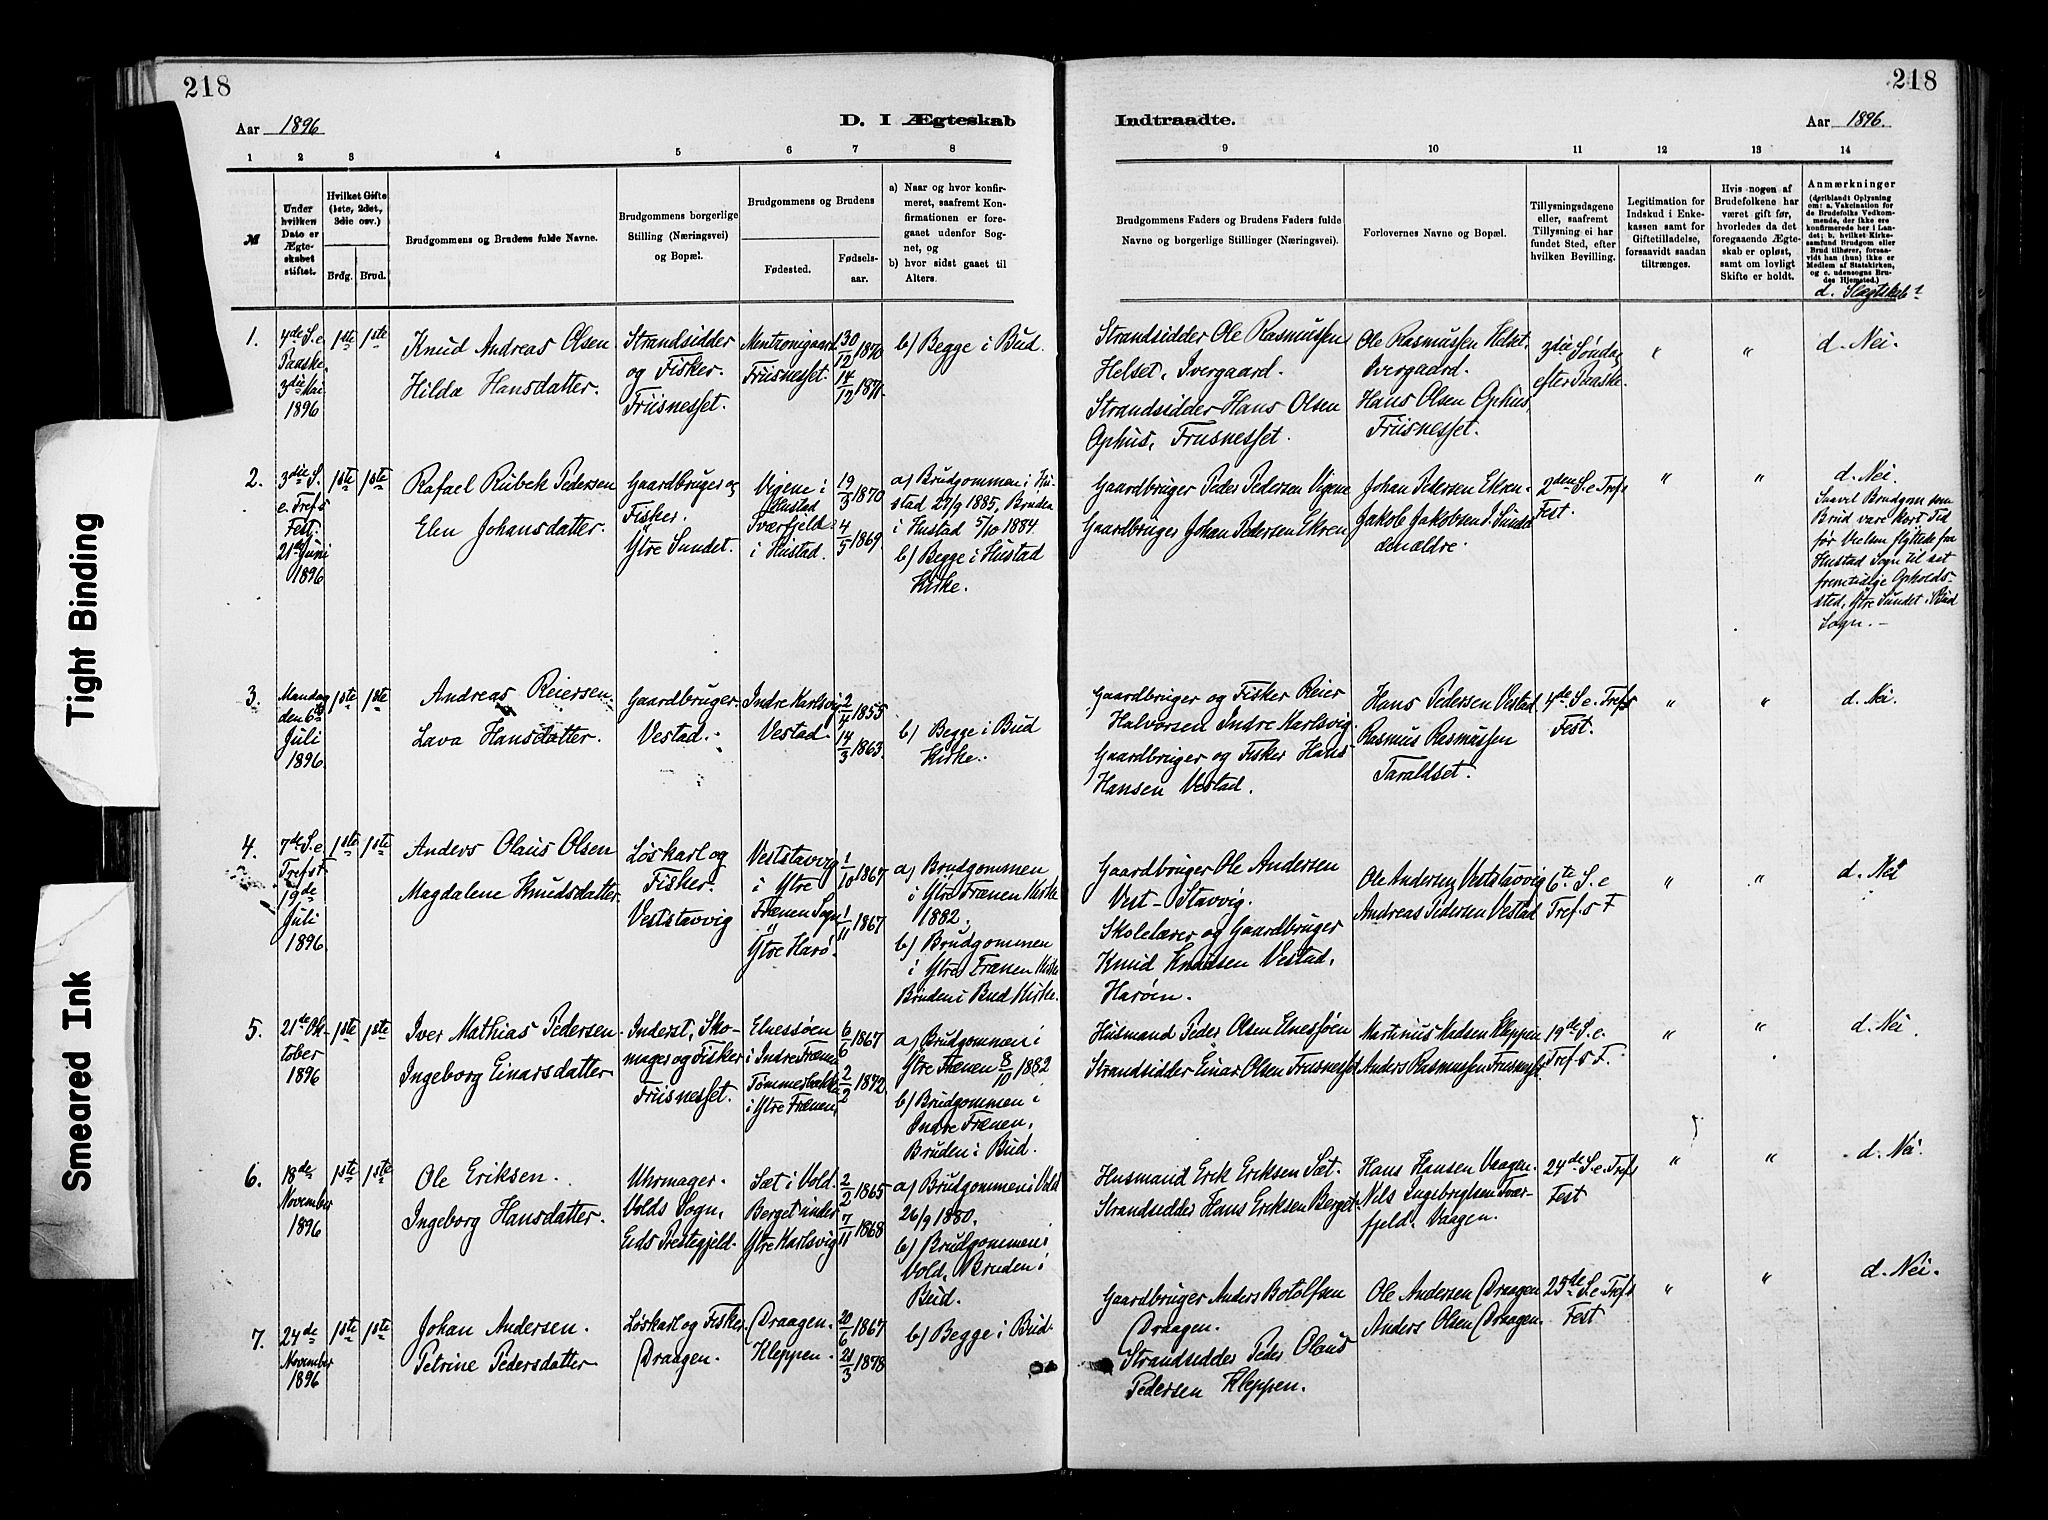 218
Aar 1896
D. I Ægteskab
1 2 3 4 5 6 7 8
№
Under hvilken Dato er Ægteskabet stiftet.
Hvilket Gifte (1ste, 2det, 3die osv.)
Brdg. Brud.
Brudgommens og Brudens fulde Navne.
Brudgommens borgerlige Stilling (Næringsvei) og Bopæl.
Brudgommens og Brudens
Fødested.
Fødselsaar.
a) Naar og hvor konfirmeret, saafremt Konfirmationen er foregaaet udenfor Sognet, og
b) hvor sidst gaaet til Alters.
1. 4de S. e. Paaske, 3die Mai 1896
1ste 1ste
Knud Andreas Olsen
Hilda Hansdatter.
Strandsidder
og Fisker.
Friisnesset.
Friisnesset.
30/12 1870
14/12 1871.
b) Begge i Bud.
2. 3die S. e. Tref.s Fest, 21de Juni 1896
1ste 1ste
Rafael Rübek Pedersen
Elen Johansdatter.
Gaardbruger og
Fisker.
Ytre Sundet.
Vigene i
Hustad
Tværfjeld
i Hustad.
19/3 1870
4/5 1869
a) Brudgommen i Hustad 27/9 1885, Bruden
i Hustad 5/10 1884.
b) Begge i Hustad
Kirke.
3. Mandag den 6te Juli 1896
1ste 1ste
Andreas Reiersen
Lava Hansdatter.
Gaardbruger.
Vestad.
Indre Karlsvig
Vestad
2/4 1855
14/3 1863.
b) Begge i Bud
Kirke.
4. 7de S. e. Tref.s F. 19de Juli 1896
1ste 1ste
Anders Olaus Olsen
Magdalene Knudsdatter.
Løskarl og
Fisker.
Veststavvig
Veststavvig
i Ytre
Frænen Sogn
"
Ytre Harø.
1/10 1867
1/11 1867
a) Brudgommen
i Ytre Frænen Kirke
1882.
b) Brudgommen
i Ytre Frænen Kirke
Bruden i Bud Kirke.
5. 21de Oktober 1896
1ste 1ste
Iver Mathias Pedersen
Ingeborg Einarsdatter
Inderst, Skomager og Fisker
Friisnesset.
Elnessøen
i Indre Frænen
i Ytre Frænen
6/6 1867
2/2 1872.
a) Brudgommen i
Ytre Frænen 8/10 1882
b) Brudgommen i
Indre Frænen,
Bruden i Bud.
6. 18de November 1896
1ste 1ste
Ole Eriksen.
Ingeborg Hansdatter.
Uhrmager.
Volds Sogn,
Eids Prestegjeld.
Sæt i Vold.
Berget under
Ytre Karlsvig
2/2 1865
7/11 1868
a) Brudgommen i Vold
26/9 1880.
b) Brudgommen i
Vold, Bruden i
Bud.
7. 24de November 1896
1ste 1ste
Johan Andersen.
Petrine Pedersdatter
Løskarl og Fisker
Draagen.
Draagen.
Kleppen.
20/6 1867
21/3 1878
b) Begge i Bud.
218
Indtraadte.
Aar 1896.
9 10 11 12 13 14
Brudgommens Faders og Brudens Faders fulde Navne og borgerlige Stillinger (Næringsvei).
Forlovernes Navne og Bopæl.
Tillysningsdagene eller, saafremt Tillysning ei har fundet Sted, efter hvilken Bevilling.
Legitimation for Indskud i Enkekassen samt for Giftetilladelse, forsaavidt saadan tiltrænges.
Hvis nogen af Brudefolkene har været gift før, hvorledes da det foregaaende Ægteskab er opløst, samt om lovligt Skifte er holdt.
Anmærkninger (deriblandt Oplysning om: a. Vakcination for de Brudefolks Vedkommende, der ikke ere konfirmerede her i Landet; b. hvilket Kirkesamfund Brudgom eller Brud tilhører, forsaavidt han (hun) ikke er Medlem af Statskirken, og c. udensogns Brudes Hjemsted.)
d. Slægtskab?
Strandsidder Ole Rasmussen
Helset, Ivergaard.
Strandsidder Hans Olsen
Ophus, Friisnesset.
Ole Rasmussen Helset,
Ivergaard.
Hans Olsen Ophus,
Friisnesset.
3die Søndag
efter Paaske.
" "
d. Nei.
Gaardbruger Peder Pedersen Vigene
Gaardbruger Johan Pedersen Ekren
Johan Pedersen Ekren
Jakob Jakobsen i Sundet
den ældre.
2den S. e. Tref.s
Fest.
" "
d. Nei.
Saavel Brudgom som
Brud vare kort Tid
før Vielsen flyttede fra
Hustad Sogn til sit
fremtidige Opholdssted, Ytre Sundet i Bud
Sogn.
Gaardbruger og Fisker Reier
Halvorsen Indre Karlsvig.
Gaardbruger og Fisker Hans
Hansen Vestad.
Hans Pedersen Vestad
Rasmus Rasmussen
Taraldset.
4de S. e. Tref.s
Fest.
" "
d. Nei.
Gaardbruger Ole Andersen
Vest-Stavvig.
Skolelærer og Gaardbruger
Knud Knudsen Vestad,
Harøen.
Ole Andersen Veststavvig
Andreas Pedersen Vestad
6te S. e
Tref.s F
" "
d. Nei
Husmand Peder Olsen Elnessøen
Strandsidder Einar Olsen Friisnesset
Martinus Madsen Kleppen
Anders Rasmussen Friisnesset.
19de S. e.
Tref.s F.
" "
d. Nei.
Husmand Erik Eriksen Sæt.
Strandsidder Hans Eriksen Berget.
Hans Hansen Vaagen.
Nils Ingebrigtsen Tværfjeld. Vaagen.
24de S. e. Tref.s
Fest
" "
d. Nei.
Gaardbruger Anders Botolfsen
Draagen.
Strandsidder Peder Olaus
Pedersen Kleppen.
Ole Andersen Draagen
Anders Olsen Draagen.
25de S. e. Tref.s
Fest
" "
d. Nei.
Tight Binding
Smeared Ink